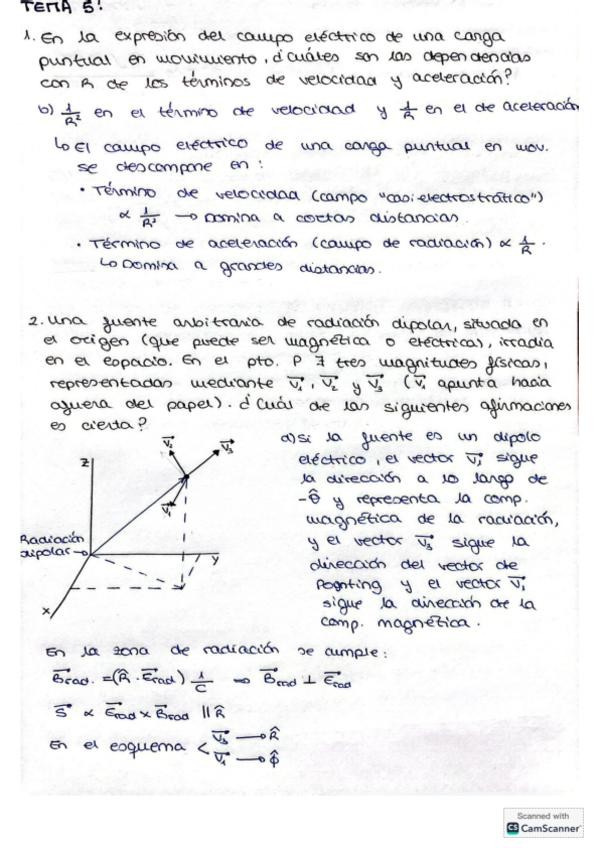 TEMA 5:
1. En la expresión del campo eléctrico de una carga
puntual en movimiento, ¿cuáles son las dependencias
con R de los términos de velocidad y aceleración?
b) 1/R² en el término de velocidad y 1/R en el de aceleración
↳ El campo eléctrico de una carga puntual en mov.
se descompone en:
• Término de velocidad (campo "casi electrostrático")
∝ 1/R² → Domina a cortas distancias.
• Término de aceleración (campo de radiación) ∝ 1/R.
↳ Domina a grandes distancias.
2. Una fuente arbitraria de radiación dipolar, situada en
el origen (que puede ser magnética o eléctrica), irradia
en el espacio. En el pto. P ∃ tres magnitudes físicas,
representadas mediante V₁, V₂ y V₃ (V₁ apunta hacia
afuera del papel). ¿Cuál de las siguientes afirmaciones
es cierta?
V₂
V₃
V₁
Z
Y
X
Radiación
dipolar
d) Si la fuente es un dipolo
eléctrico, el vector sigue
la dirección a lo largo de
-θ̂ y representa la comp.
magnética de la radiación,
y el vector V₃ sigue la
dirección del vector de
Poynting y el vector V₁
sigue la dirección de la
comp. magnética.
En la zona de radiación se cumple:
B⃗rad. = (R̂ · E⃗rad) 1/C ⇒ B⃗rad ⊥ E⃗rad
S⃗ ∝ E⃗rad × B⃗rad || R̂
En el esquema < V₃ → R̂
V₁ → ϕ̂
Scanned with
CS CamScanner